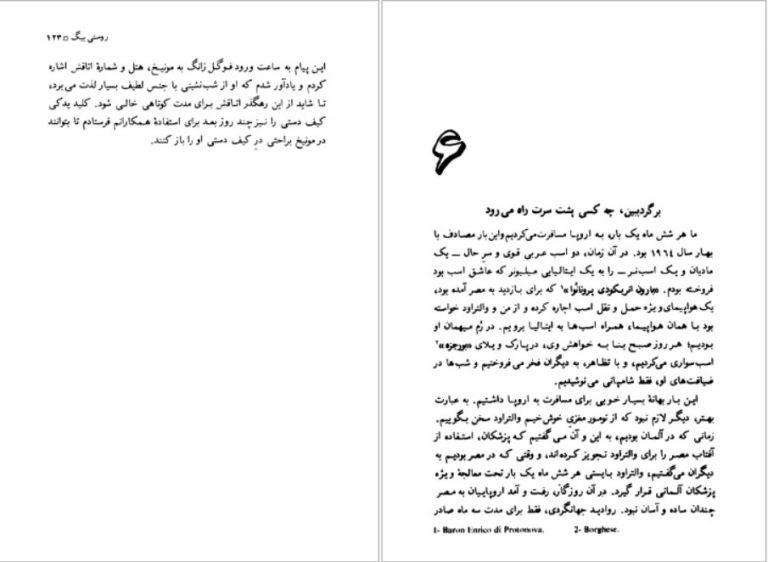 روستی بیگ □ ۱۲۳
این پیام به ساعت ورود فوگل زانگ به مونیخ، هتل و شمارهٔ اتاقش اشاره
کردم و یادآور شدم که او از شب‌نشینی با جنس لطیف بسیار لذت می‌برد،
تا شاید از این رهگذر اتاقش برای مدت کوتاهی خالی شود. کلید یدکی
کیف دستی را نیز چند روز بعد برای استفادهٔ همکارانم فرستادم تا بتوانند
در مونیخ براحتی درِ کیف دستی او را باز کنند.
۶
برگردببین، چه کسی پشت سرت راه می‌رود
ما هر شش ماه یک بار، به اروپا مسافرت می‌کردیم واین بار مصادف با
بهار سال ۱۹٦٤ بود. در آن زمان، دو اسب عربی قوی و سرِ حال ــ یک
مادیان و یک اسب‌نر ــ را به یک ایتالیایی میلیونر که عاشق اسب بود
فروخته بودم. «بارون انریکودی پروتانُوا»¹ که برای بازدید به مصر آمده بود،
یک هواپیمای ویژه حمل و نقل اسب اجاره کرده و از من و والتراود خواسته
بود با همان هواپیما، همراه اسب‌ها به ایتالیا برویم. در رُم میهمان او
بودیم؛ هر روز صبح بنا به خواهش وی، درپارک ویلای «بورجزه»²
اسب‌سواری می‌کردیم، و با تظاهر، به دیگران فخر می‌فروختیم و شب‌ها در
ضیافت‌های او، فقط شامپانی می‌نوشیدیم.
این بار بهانهٔ بسیار خوبی برای مسافرت به اروپا داشتیم. به عبارت
بهتر، دیگر لازم نبود که از تومور مغزیِ خوش‌خیم والتراود سخن بگوییم.
زمانی که در آلمان بودیم، به این و آن می‌گفتیم که پزشکان، استفاده از
آفتاب مصر را برای والتراود تجویز کرده‌اند، و وقتی که در مصر بودیم به
دیگران می‌گفتیم، والتراود بایستی هر شش ماه یک بار تحت معالجهٔ ویژه
پزشکان آلمانی قرار گیرد. در آن روزگار، رفت و آمد اروپاییان به مصر
چندان ساده و آسان نبود. روادید جهانگردی، فقط برای مدت سه ماه صادر
1- Baron Enrico di Protonova. 2- Borghese.